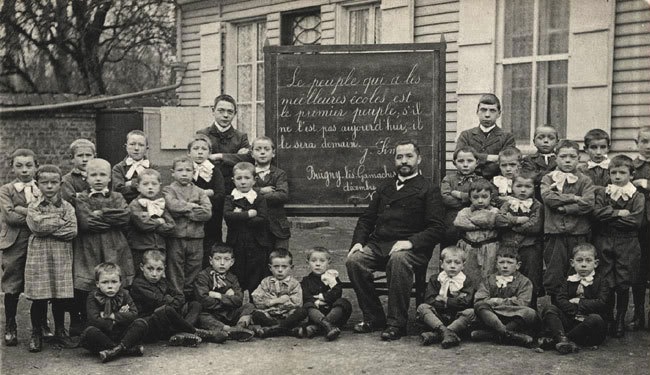 Le peuple qui a les
meilleures écoles est
le premier peuple, s'il
ne l'est pas aujourd'hui, il
le sera demain.
J. Simon
Prugny les Gamaches
décembre